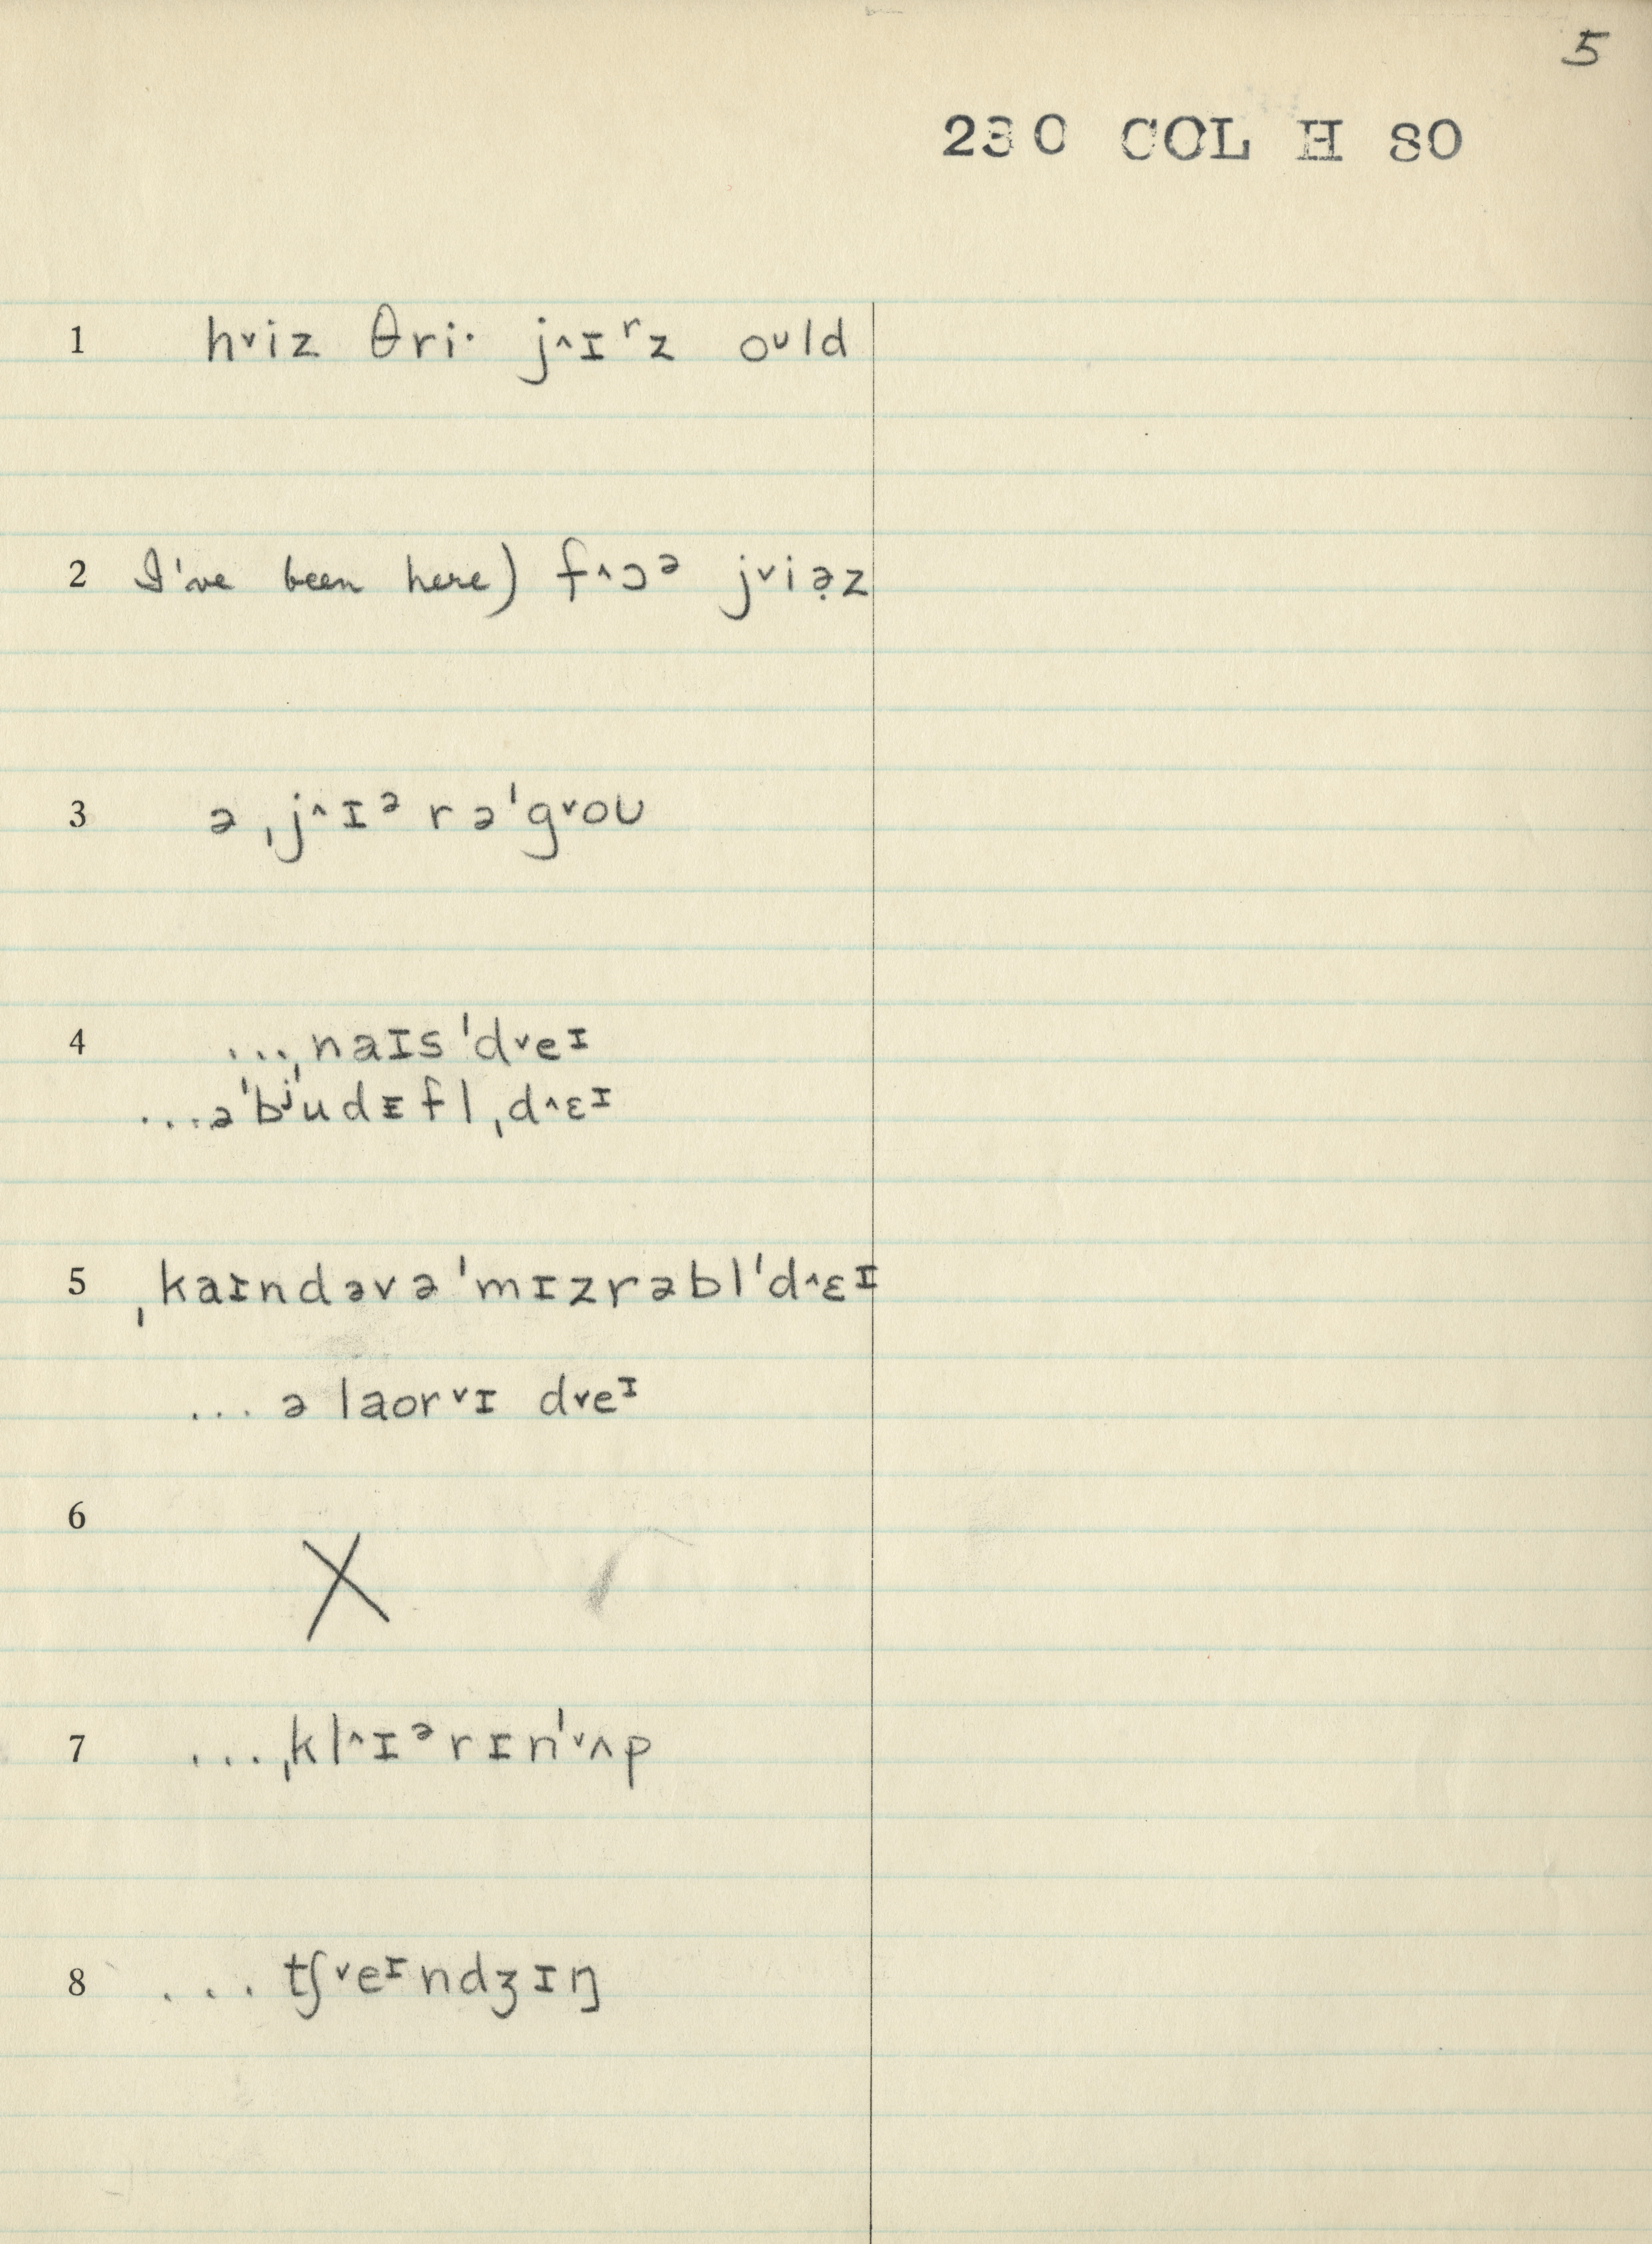 5
230 COL H SO
1 hᵛiz θri· j^ɪʳz oᶷld
2 I've been here) f^ɔᵊ jᵛiə̣z
3 ə ˌj^ɪᵊ rə'gᵛoʊ
4 ...ˌnaɪs'dᵛeᶦ
...ə'bʲudɪfl ˌd^ɛᶦ
5 ˌkaɪndəvə'mɪzrəbl'd^ɛᶦ
... ə laorᵛɪ dᵛeᶦ
6 X
7 ...ˌkl^ɪᵊrɪn'ᵛʌp
8 ... tʃᵛeᶦndʒɪŋ